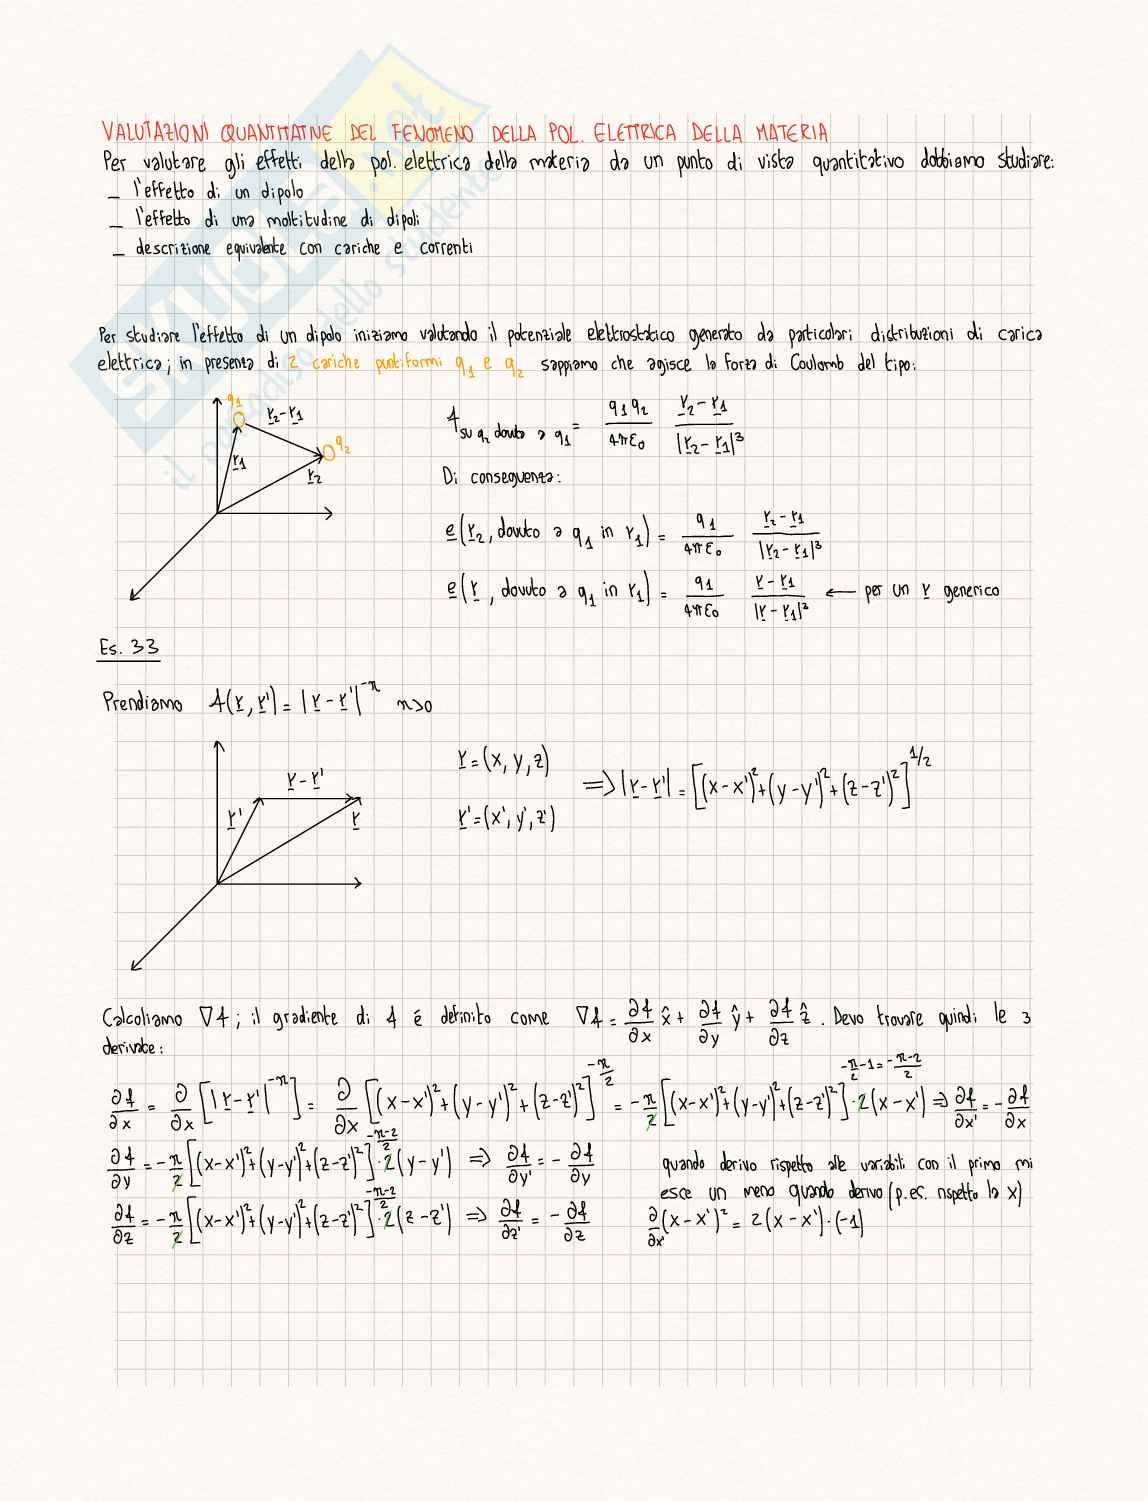 VALUTAZIONI QUANTITATIVE DEL FENOMENO DELLA POL. ELETTRICA DELLA MATERIA
Per valutare gli effetti della pol. elettrica della materia da un punto di vista quantitativo dobbiamo studiare:
_ l'effetto di un dipolo
_ l'effetto di una moltitudine di dipoli
_ descrizione equivalente con cariche e correnti
Per studiare l'effetto di un dipolo iniziamo valutando il potenziale elettrostatico generato da particolari distribuzioni di carica
elettrica; in presenza di 2 cariche puntiformi q₁ e q₂ sappiamo che agisce la forza di Coulomb del tipo:
q₁ r₂-r₁ q₂ r₁ r₂
f su q₂ dovuto a q₁ = q₁q₂/4πε₀ (r₂-r₁)/|r₂-r₁|³
Di conseguenza:
e(r₂, dovuto a q₁ in r₁) = q₁/4πε₀ (r₂-r₁)/|r₂-r₁|³
e(r, dovuto a q₁ in r₁) = q₁/4πε₀ (r-r₁)/|r-r₁|³ ← per un r generico
Es. 33
Prendiamo f(r, r') = |r-r'|⁻ⁿ n>0
r-r' r' r
r = (x, y, z) ⇒ |r-r'| = [(x-x')²+(y-y')²+(z-z')²]^1/2
r' = (x', y', z')
Calcoliamo ∇f; il gradiente di f é definito come ∇f = ∂f/∂x x̂ + ∂f/∂y ŷ + ∂f/∂z ẑ. Devo trovare quindi le 3
derivate:
-n/2-1 = -n-2/2
∂f/∂x = ∂/∂x [|r-r'|⁻ⁿ] = ∂/∂x [(x-x')²+(y-y')²+(z-z')²]^-n/2 = -n/2 [(x-x')²+(y-y')²+(z-z')²] · 2(x-x') ⇒ ∂f/∂x' = -∂f/∂x
∂f/∂y = -n/2 [(x-x')²+(y-y')²+(z-z')²]^-n-2/2 · 2(y-y') ⇒ ∂f/∂y' = -∂f/∂y
∂f/∂z = -n/2 [(x-x')²+(y-y')²+(z-z')²]^-n-2/2 · 2(z-z') ⇒ ∂f/∂z' = -∂f/∂z
quando derivo rispetto alle variabili con il primo mi
esce un meno quando derivo (p.es. rispetto la x)
∂/∂x' (x-x')² = 2(x-x')·(-1)
SKUOLA.net
il paradiso dello studente